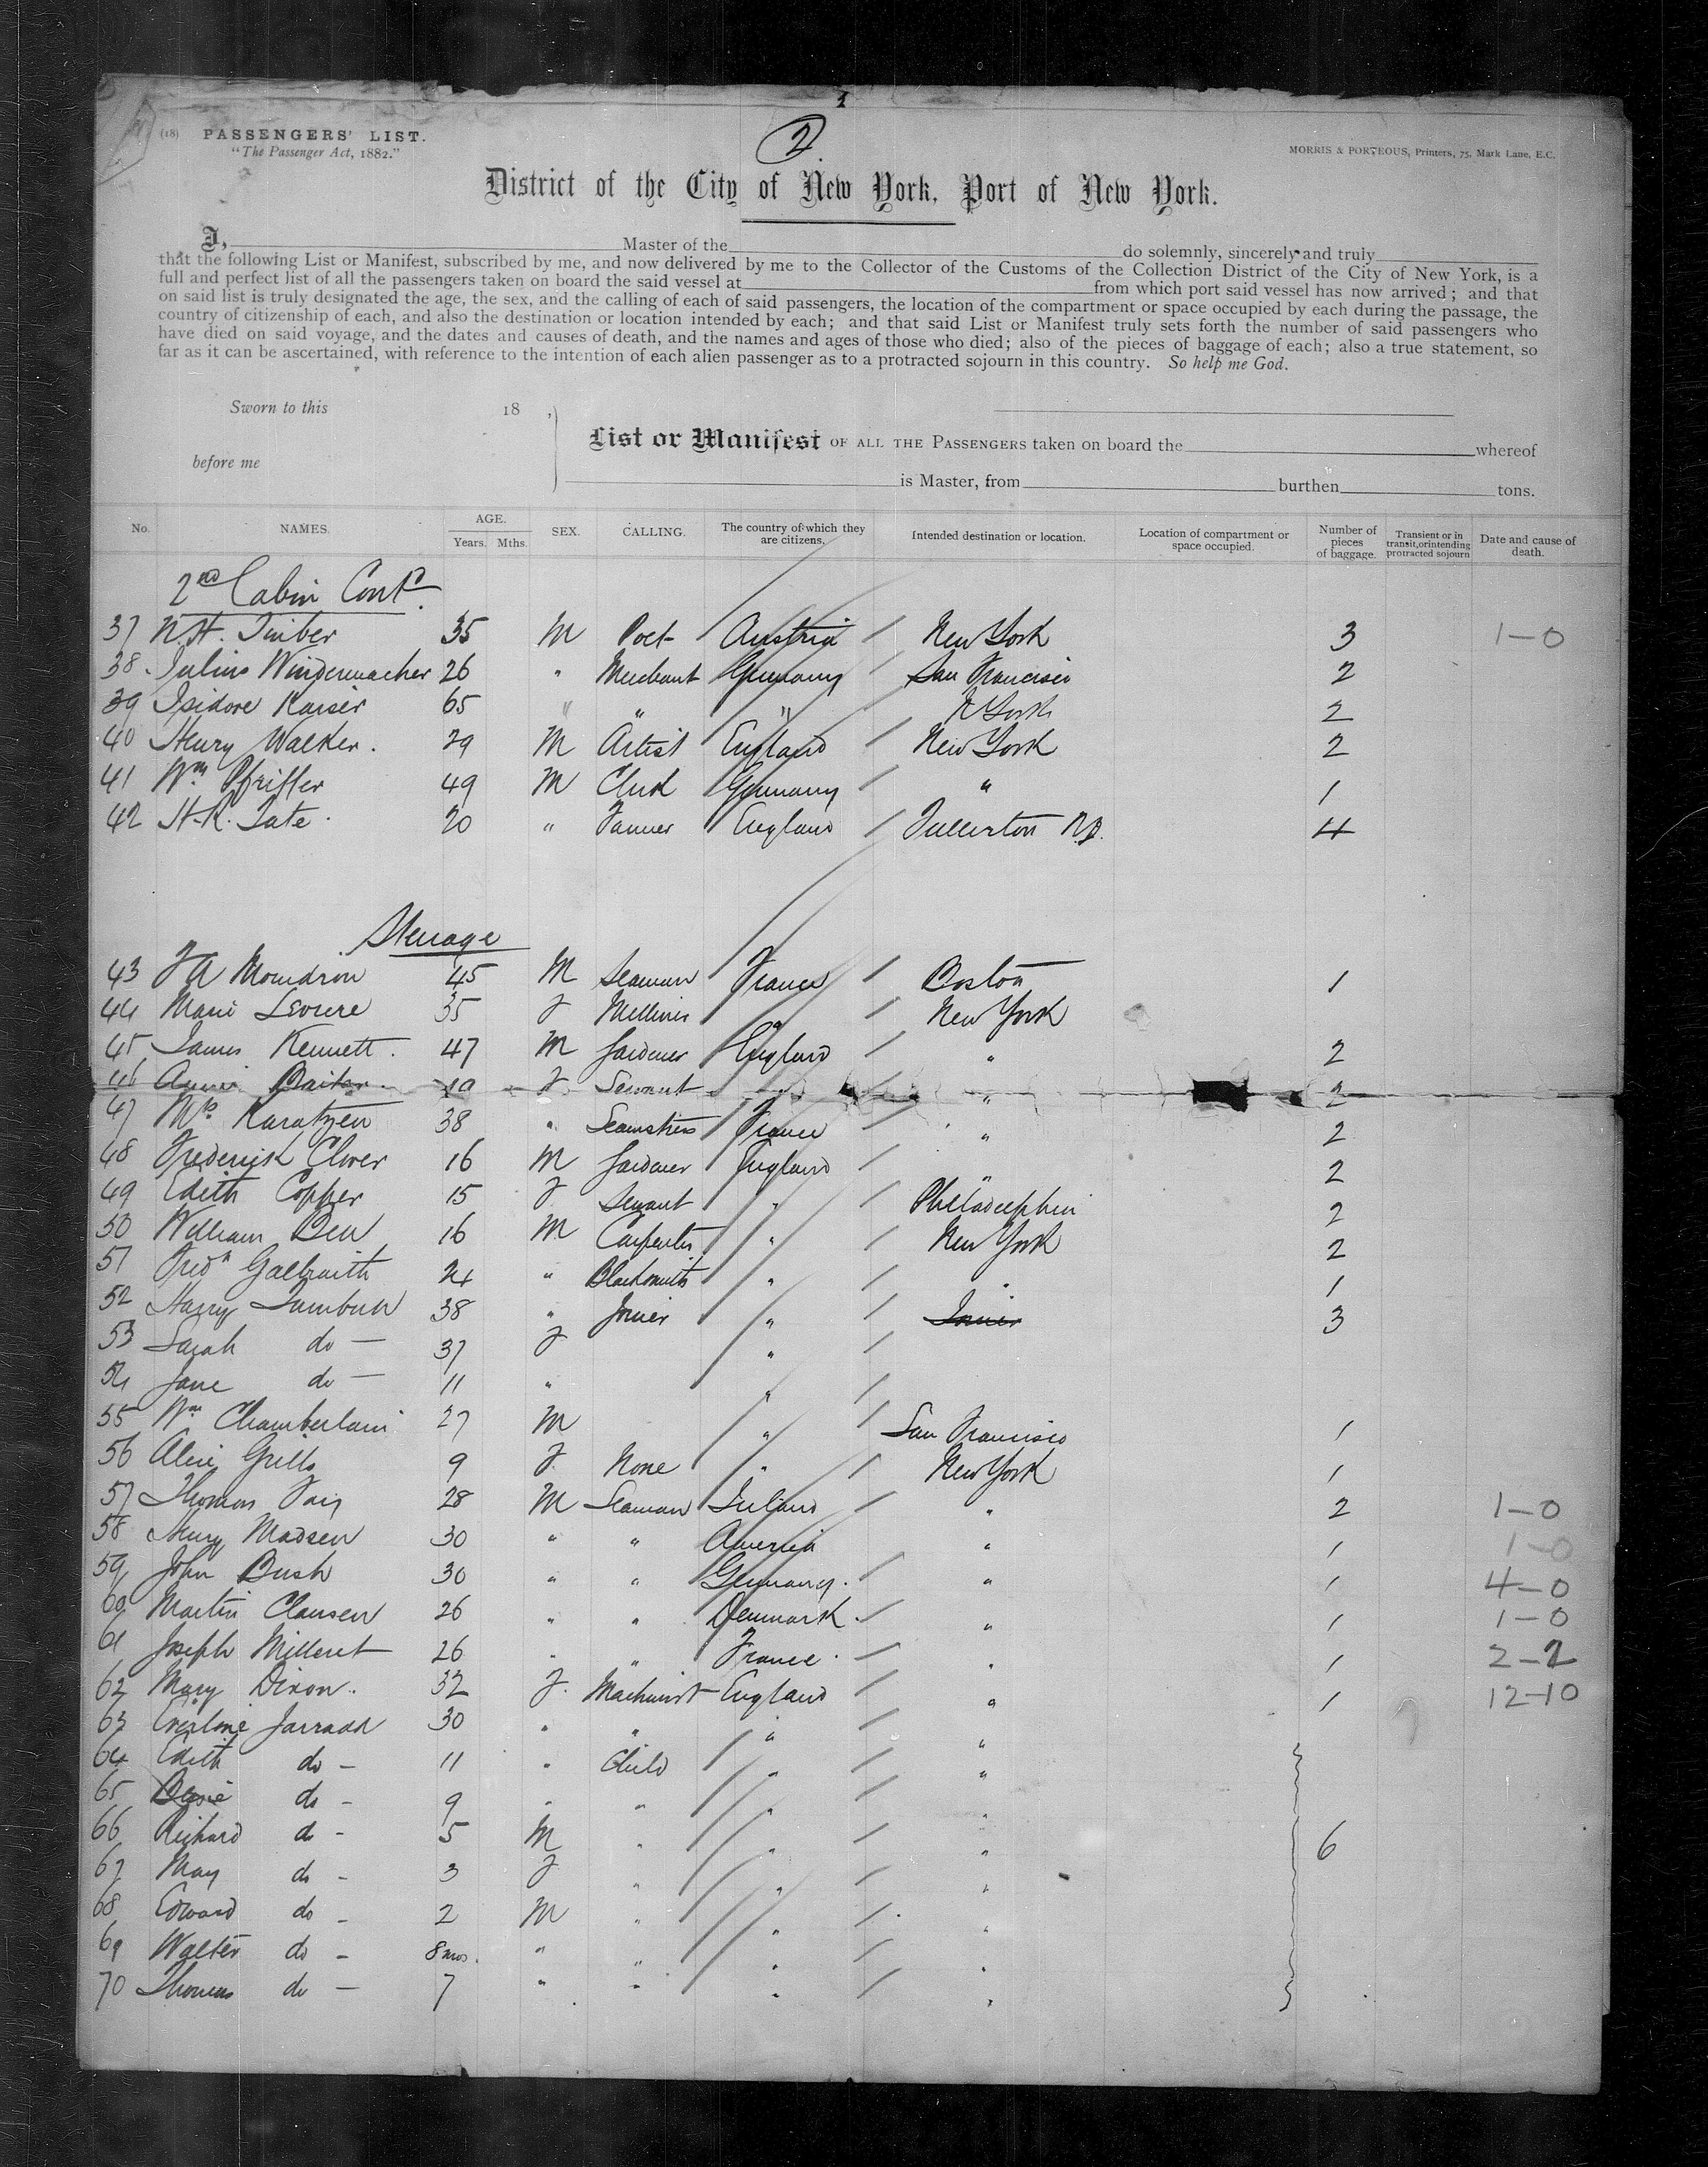 2
(18) PASSENGERS' LIST.
"The Passenger Act, 1882."
MORRIS & PORTEOUS, Printers, 75, Mark Lane, E.C.
District of the City of New York, Port of New York.
I, Master of the do solemnly, sincerely and truly
that the following List or Manifest, subscribed by me, and now delivered by me to the Collector of the Customs of the Collection District of the City of New York, is a
full and perfect list of all the passengers taken on board the said vessel at from which port said vessel has now arrived; and that
on said list is truly designated the age, the sex, and the calling of each of said passengers, the location of the compartment or space occupied by each during the passage, the
country of citizenship of each, and also the destination or location intended by each; and that said List or Manifest truly sets forth the number of said passengers who
have died on said voyage, and the dates and causes of death, and the names and ages of those who died; also of the pieces of baggage of each; also a true statement, so
far as it can be ascertained, with reference to the intention of each alien passenger as to a protracted sojourn in this country. So help me God.
Sworn to this 18 ,
before me
List or Manifest OF ALL THE PASSENGERS taken on board the whereof
is Master, from burthen tons.
No. NAMES. AGE. Years. Mths. SEX. CALLING. The country of which they are citizens. Intended destination or location. Location of compartment or space occupied. Number of pieces of baggage. Transient or in transit, or intending protracted sojourn Date and cause of death.
2nd Cabin Contd
37 N.H. Imber 35 M Poet Austria / New York 3 1-0
38 Julius Windermacher 26 " Merchant Germany / San Francisco 2
39 Isidore Kaiser 65 " " " N York 2
40 Henry Walker. 29 M Artist England / New York 2
41 Wm Pfeiffer 49 M Clerk Germany / " 1
42 H.R. Tate. 20 " Farmer England / Fullerton N.D. 4
Steerage
43 F A 45 M Seaman France / Boston 1
44 Marie 35 F Milliner " / New York
45 James Kennett. 47 M Gardener England / " 2
46 Annie 19 F Servant " / " 2
47 Mrs Karatzen 38 " Seamstress France / " 2
48 Frederick Clover 16 M Gardener England / " 2
49 Edith Copper 15 F Servant " / Philadelphia 2
50 William 16 M Carpenter " / New York 2
51 Fredk Galbraith 24 " Blacksmith " / " 1
52 Harry 38 " Joiner " / Joiner 3
53 Sarah do — 37 F " /
54 Jane do — 11 " " /
55 Wm Chamberlain 27 M " / San Francisco 1
56 Alice Grills 9 F. None " / New York 1
57 Thomas 28 M Seaman Ireland / " 2 1-0
58 Henry Madsen 30 " " America " 1 1-0
59 John Bush 30 " " Germany. / " 1 4-0
60 Martin Clausen 26 " " Denmark. / " 1 1-0
61 Joseph Milleret 26 " " France. / " 1 2-2
62 Mary Dixon. 32 F. Machinist England / " 1 12-10
63 Eveline Jarradd 30 " " " / "
64 Edith do - 11 " Child " / "
65 do - 9 " " " / "
66 Richard do - 5 M " " / " 6
67 May do - 3 F " " / "
68 Edward do - 2 M " " / "
69 Walter do - 8 mos. " " " / "
70 Thomas do — 7 " " " / "